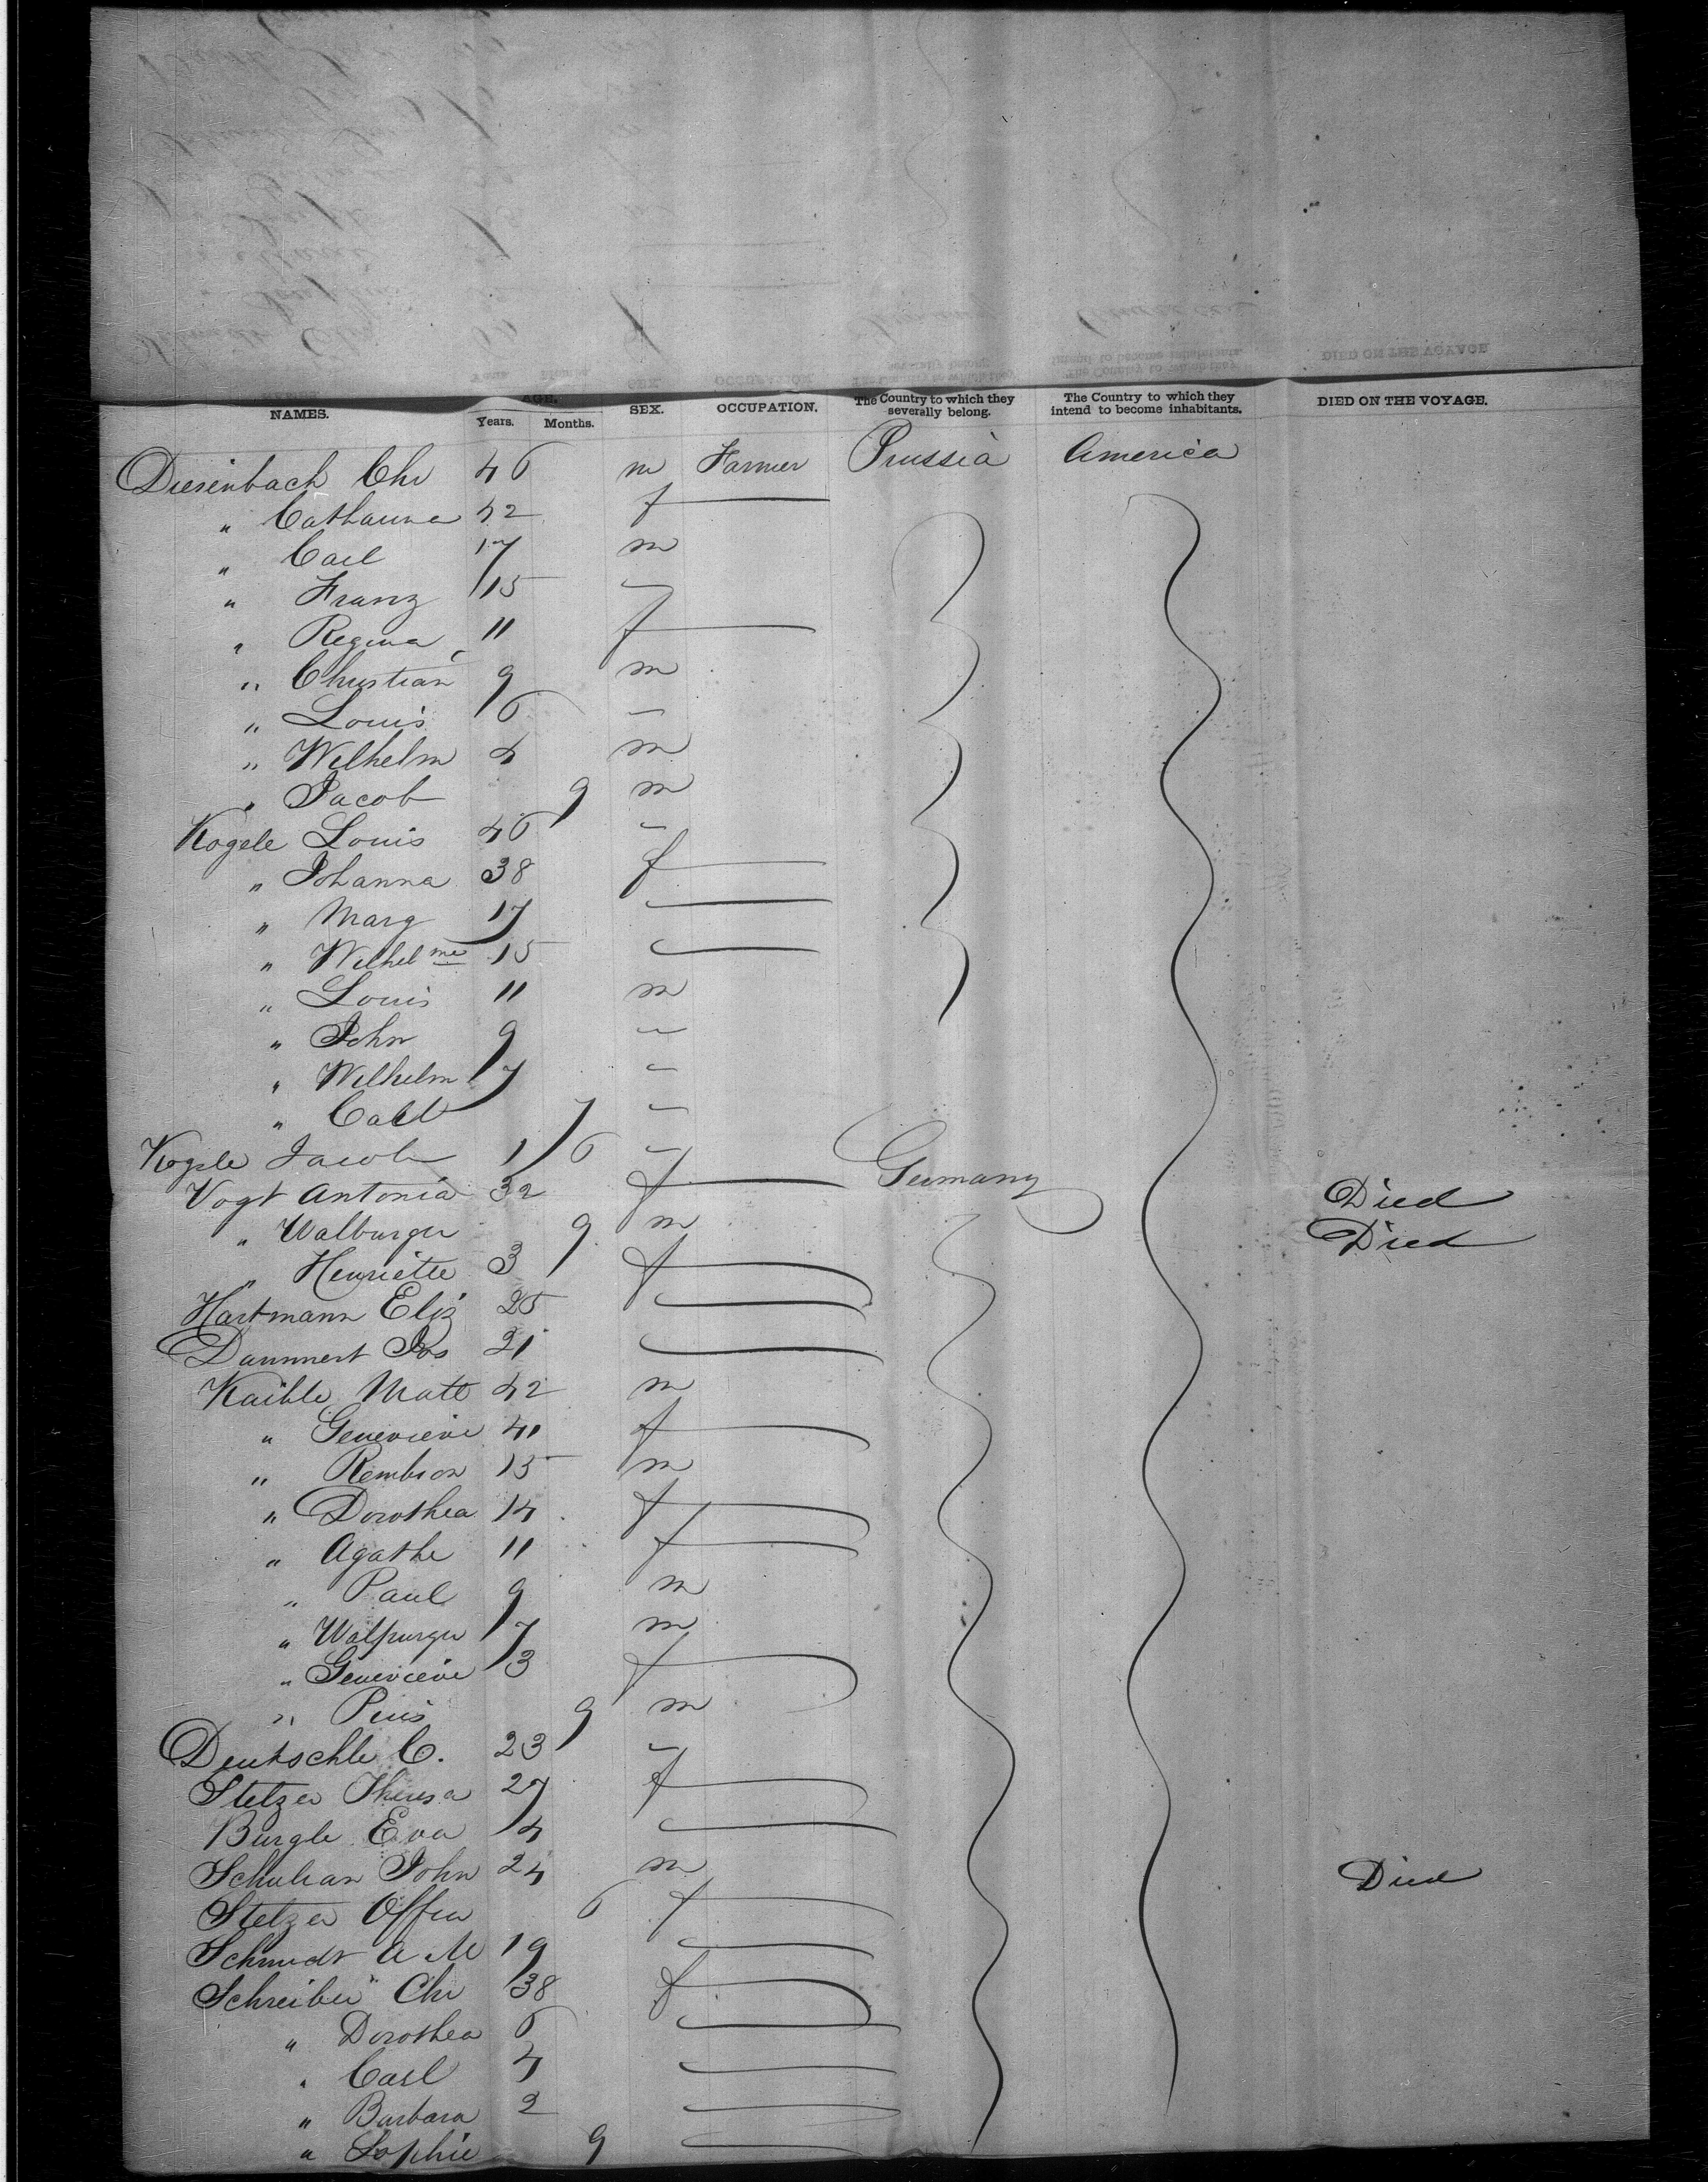 NAMES. AGE. Years. Months. SEX. OCCUPATION. The Country to which they severally belong. The Country to which they intend to become inhabitants. DIED ON THE VOYAGE.
Diesenbach Chr 46 m Farmer Prussia America
" Catharina 42 f
" Carl 17 m
" Franz 15 "
" Regina 11 f
" Christian 9 m
" Louis 6 "
" Wilhelm 4 m
" Jacob 9 m
Kogele Louis 46 "
" Johanna 38 f
" Marg 17
" Wilhelme 15
" Louis 11 m
" John 9 "
" Wilhelm 7 "
" Carl 7 "
Kogele Jacob 1 6 "
Vogt Antonia 32 f Germany Died
" Walburger 9 m Died
" Henriette 3 f
Hartmann Eliz 25
Dammert Jos 21
Kaible Matt 42 m
" Genevieve 41 f
" Rembion 15 m
" Dorothea 14 f
" Agathe 11 f
" Paul 9 m
" Walpurger 7 m
" Genevieve 3 f
" Pius 9 m
Deutschle C. 23 "
Stelzer Theresa 27 f
Burgle Eva 4
Schulian John 24 m Died
Stelzer 6 f
Schmidt A M 19
Schreiber Chr 38 f
" Dorothea 6
" Carl 4
" Barbara 2
" Sophie 9